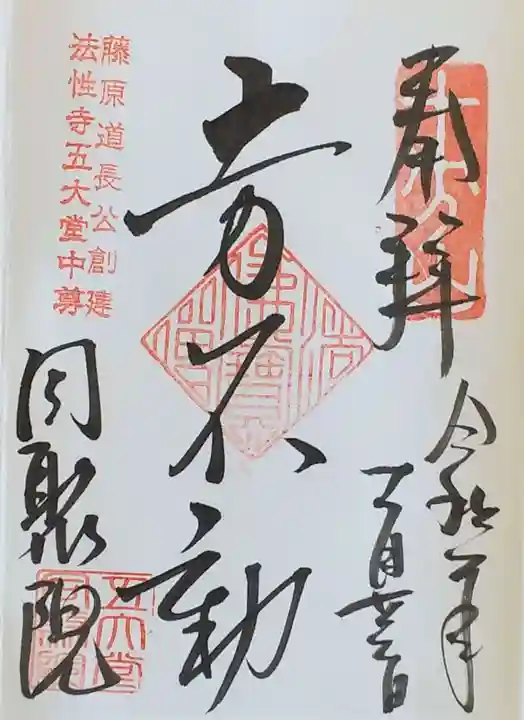 奉拝
令和 年
月 日
不動
藤原道長公創建
法性寺五大堂中尊
同聚院
五大堂
同聚院